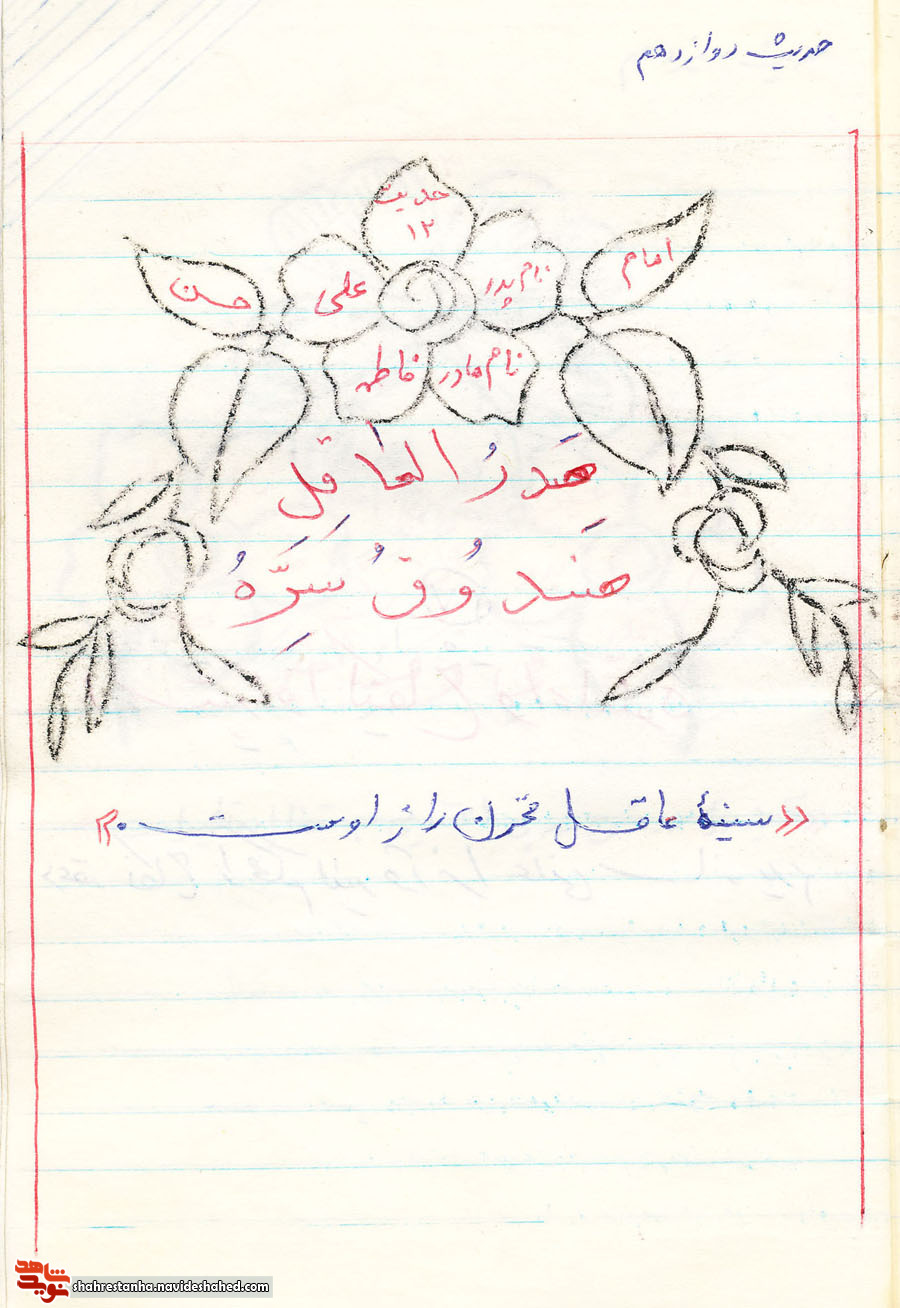 حدیث دوازدهم
حدیث
۱۲
امام
نام پدر
علی
حسن
نام مادر
فاطمه
صَدرُ العاقِل
صَندُوقُ سِرَّهُ
«سینهٔ عاقل مخزن راز اوست.»
نوید شاهد
shahrestanha.navideshahed.com